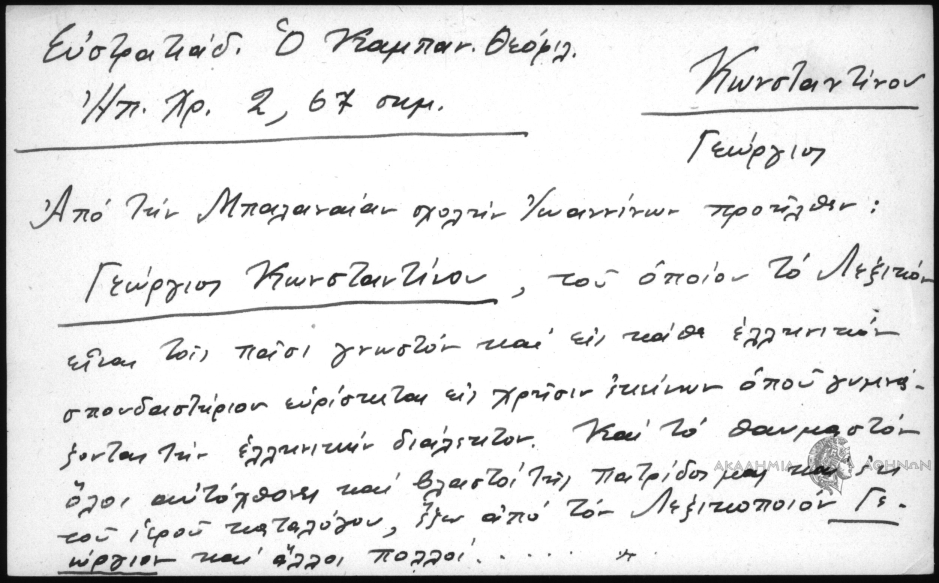 Εὐστρατιάδ. Ὁ Καμπαν. Θεόφιλ.
Ἠπ. Χρ. 2, 67 σημ.
Κωνσταντίνου
Γεώργιος
Ἀπό τήν Μπαλαναίαν σχολήν Ἰωαννίνων προῆλθεν:
Γεώργιος Κωνσταντίνου, τοῦ ὁποίου τό Λεξικόν
εἶναι τοῖς πᾶσι γνωστόν καί εἰς κάθε ἑλληνικόν
σπουδαστήριον εὑρίσκεται εἰς χρῆσιν ἐκείνων ὁποῦ γυμνά-
ζονται τήν ἑλληνικήν διάλεκτον. Καί τό θαυμαστόν
ὅλοι αὐτόχθονες καί βλαστοί τῆς πατρίδος μας καί ἐκ
τοῦ ἱεροῦ καταλόγου, ἔξω ἀπό τόν Λεξικοποιόν Γε-
ώργιον καί ἄλλοι πολλοί......
ΑΚΑΔΗΜΙΑ ΑΘΗΝΩΝ